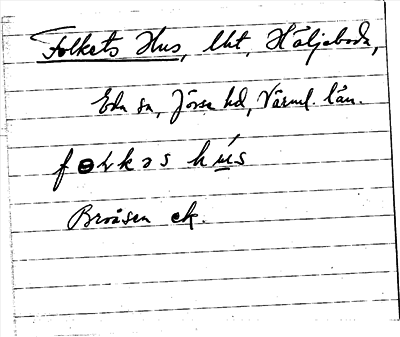 Folkets Hus, lht, Häljeboda,
Eda sn, Jösse hd, Värml. län.
fɵLkəs hús
Broåsen ek.